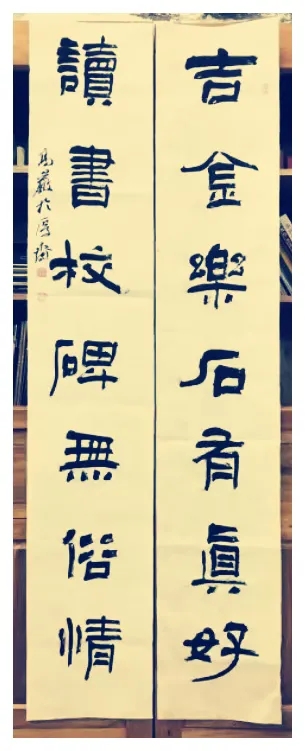 吉金樂石有真好
讀書校碑無俗情